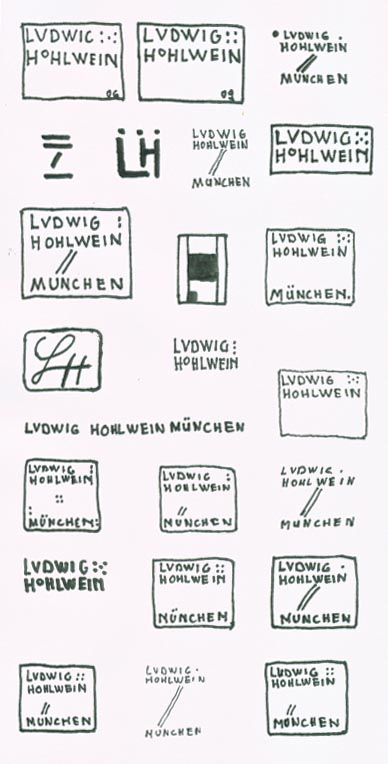 LVDWIG :·:
HOHLWEIN
06
LVDWIG ::
HOHLWEIN
09
• LVDWIG ·
HOHLWEIN
//
MÜNCHEN
LH
LVDWIG
HOHLWEIN
//
MÜNCHEN
LVDWIG :·:
HOHLWEIN
LVDWIG :
HOHLWEIN
//
MUNCHEN
LVDWIG :·:
HOHLWEIN
MÜNCHEN.
LH
LVDWIG :
HOHLWEIN
LVDWIG :·:
HOHLWEIN
LVDWIG HOHLWEIN MÜNCHEN
LVDWIG :
HOHLWEIN
::
: MÜNCHEN:
LVDWIG :
HOHLWEIN
//
MÜNCHEN
LVDWIG ·
HOHLWEIN
//
MÜNCHEN
LVDWIG :·:
HOHLWEIN
LVDWIG ::
HOHLWEIN
MÜNCHEN.
LVDWIG ·
HOHLWEIN
//
MUNCHEN
LVDWIG ::
HOHLWEIN
//
MUNCHEN
LVDWIG ·
HOHLWEIN
//
MUNCHEN
LVDWIG ::
HOHLWEIN
//
MUNCHEN